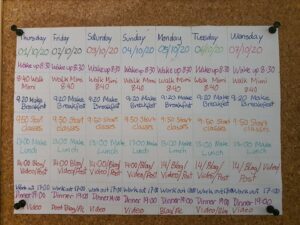 Thursday Friday Saturday Sunday Monday Tuesday Wensday
01/10/20 02/10/20 03/10/20 04/10/20 05/10/20 06/10/20 07/10/20
Wake up 8:30 Wake up 8:30 Wake up 8:30 Wake up 8:30 Wake up 8:30 Wake up 8:30 Wake up 8:30
8:40 Walk Walk Mimi Walk Mimi Walk Mimi Walk Mimi Walk Mimi Walk Mimi
Mimi 8:40 8:40 8:40 8:40 8:40 8:40
9:20 Make 9:20 Make 9:20 Make 9:20 Make 9:20 Make 9:20 Make 9:20 Make
Breakfast Breakfast Breakfast Breakfast Breakfast Breakfast Breakfast
9:50 Start 9:50 Start 9:50 Start 9:50 Start 9:50 Start 9:50 Start 9:50 Start
Classes Classes Classes Classes Classes Classes Classes
13:00 Make 13:00 Make 13:00 Make 13:00 Make 13:00 Make 13:00 Make 13:00 Make
Lunch Lunch Lunch Lunch Lunch Lunch Lunch
14:00 Blog/ 14:00 Blog/ 14:00/Blog 14:00/Blog/ 14/Blog/ 14/Blog/ 14/Blog/
Video/Post Video/Post Video/Post Video/Post Video/Post Video/Post
Work out 17:00 Work out 17:00 Work out 17:00 Work out 17:00 Work out 17:00 Work out 17:00
Dinner 19:00 Dinner 19:00 Dinner 19:00 Dinner 19:00 Dinner 19:00 Dinner 19:00
Video Video Video Video